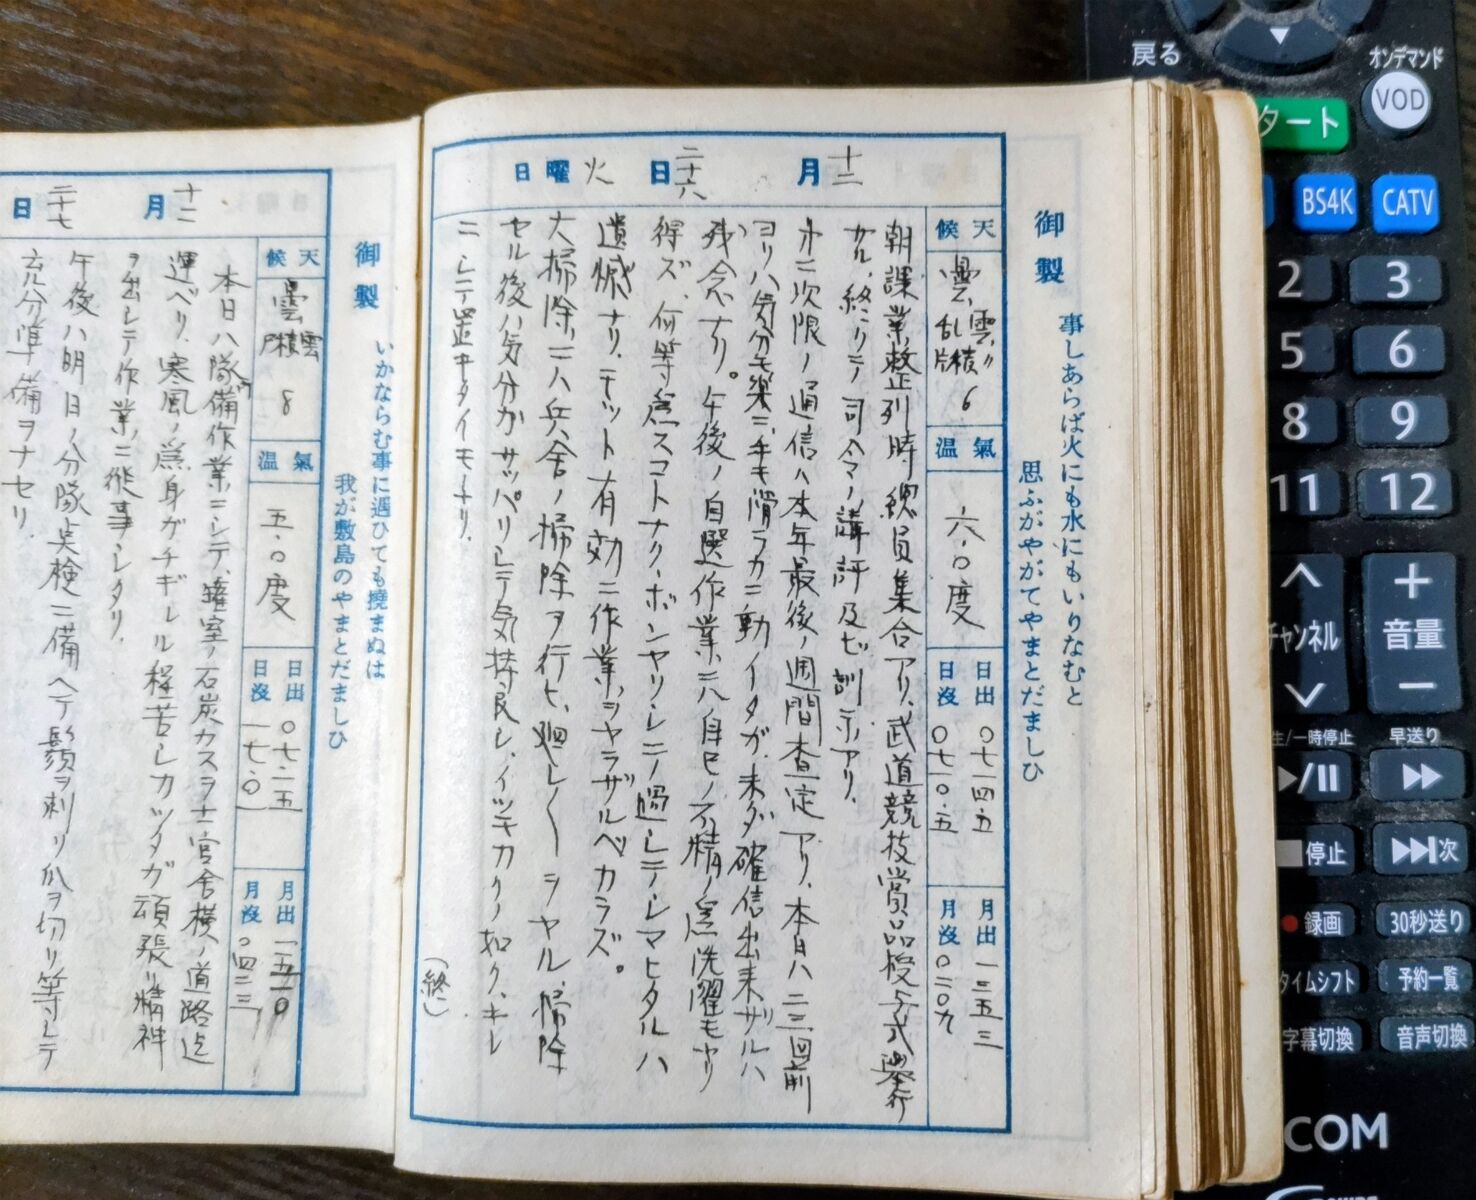 御製
事しあらば火にも水にもいりなむと
思ふがやがてやまとだましひ
十二月二十六日火曜日
天候
曇、雲、乱積 6
氣温
六・〇度
日出〇七一四・五
日没〇七一〇・五
月出一三五三
月没〇二〇九
朝課業整列時総員集合アリ、武道競技賞品授与式挙行
サル、終リテ司令ノ講評及ビ訓示アリ、
第二次限ノ通信ハ本年最後ノ週間査定アリ、本日ハ二三回前
ヨリハ気分モ楽ニ、手モ滑ラカニ動イタガ、未ダ確信出来ザルハ
残念ナリ。午後ノ自選作業ニハ自己ノ不精ノ為洗濯モヤリ
得ズ、何等為スコトナク、ボンヤリシテ過シテシマヒタルハ
遺憾ナリ、モット有効ニ作業ヲヤラザルベカラズ。
大掃除ニハ兵舎ノ掃除ヲ行ヒ、廻シ〱シヤル、掃除
セル後ハ気分ガサッパリシテ気持良シ、イツモカクノ如ク、キレ
ニシテ置キタイモナリ、
(終)
御製
いかならむ事に遇ひても撓まぬは
我が敷島のやまとだましひ
十二月二十七日
天候
曇 積雲 8
氣温
五・〇度
日出〇七・一五
日没一七・〇
月出一五一〇
月没〇四三三
本日ハ隊備作業ニシテ、石炭カスヲ士官舎横ノ道路迄
運ベリ、寒風ノ為身ガチギレル程苦シカッタガ頑張リ精神
ヲ出シテ作業ニ従事シタリ、
午後ハ明日ノ分隊点検ニ備ヘテ鬚ヲ剃リ爪ヲ切リ等シテ
充分準備ヲナセリ、
戻る
オンデマンド
VOD
タート
BS4K
CATV
2
3
5
6
8
9
11
12
チャンネル
+
音量
−
生/一時停止
早送り
停止
次
録画
30秒送り
タイムシフト
予約一覧
字幕切換
音声切換
COM